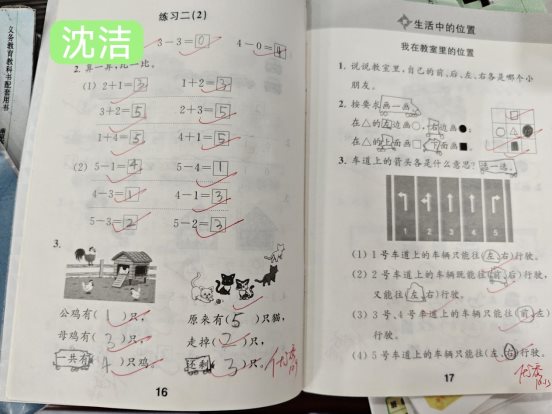 沈洁
练习二(2)
3-3=0 4-0=4
2. 算一算,比一比。
(1) 2+1=3 1+2=3
3+2=5 2+3=5
1+4=5 4+1=5
(2) 5-1=4 5-4=1
4-3=1 4-1=3
5-3=2 5-2=3
3.
公鸡有(1)只,
母鸡有(3)只,
一共有(4)只鸡。
原来有(5)只猫,
走掉(2)只,
还剩(3)只。
优秀
16
生活中的位置
我在教室里的位置
1. 说说教室里,自己的前、后、左、右各是哪个小
朋友。
2. 按要求画一画
在△的左边画○,右边画●;
在△的上面画□,下面画■。
3. 车道上的箭头各是什么意思?选一选。
1 2 3 4 5
(1) 1号车道上的车辆只能往(左,右)行驶。
(2) 2号车道上的车辆既能往(前,后)行驶,
又能往(左,右)行驶。
(3) 3号、4号车道上的车辆只能往(前,左)行
驶。
(4) 5号车道上的车辆只能往(左,右)行驶。
优秀
17
义务教育教科书配套用书